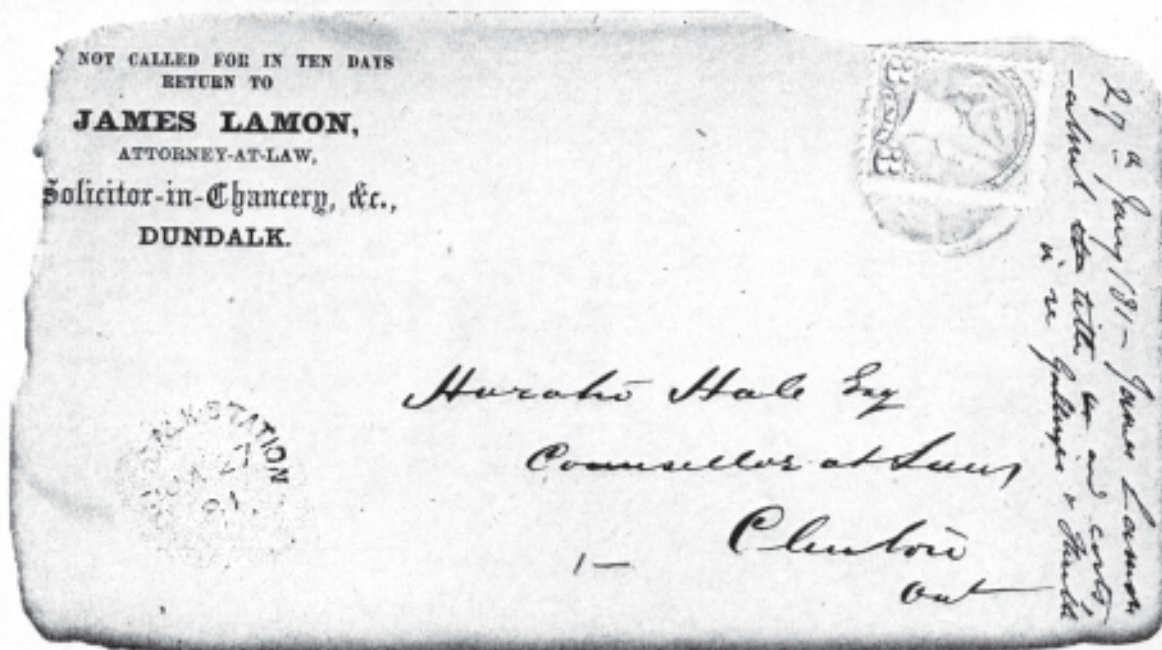 NOT CALLED FOR IN TEN DAYS
RETURN TO
JAMES LAMON,
ATTORNEY-AT-LAW,
Solicitor-in-Chancery, &c.,
DUNDALK.
ALK STATION
27
81
Horatio Hale Esq
Counsellor at Law
Clinton
Ont
1—
27 Jany /81 — James Lamon
— about title and costs,
in re